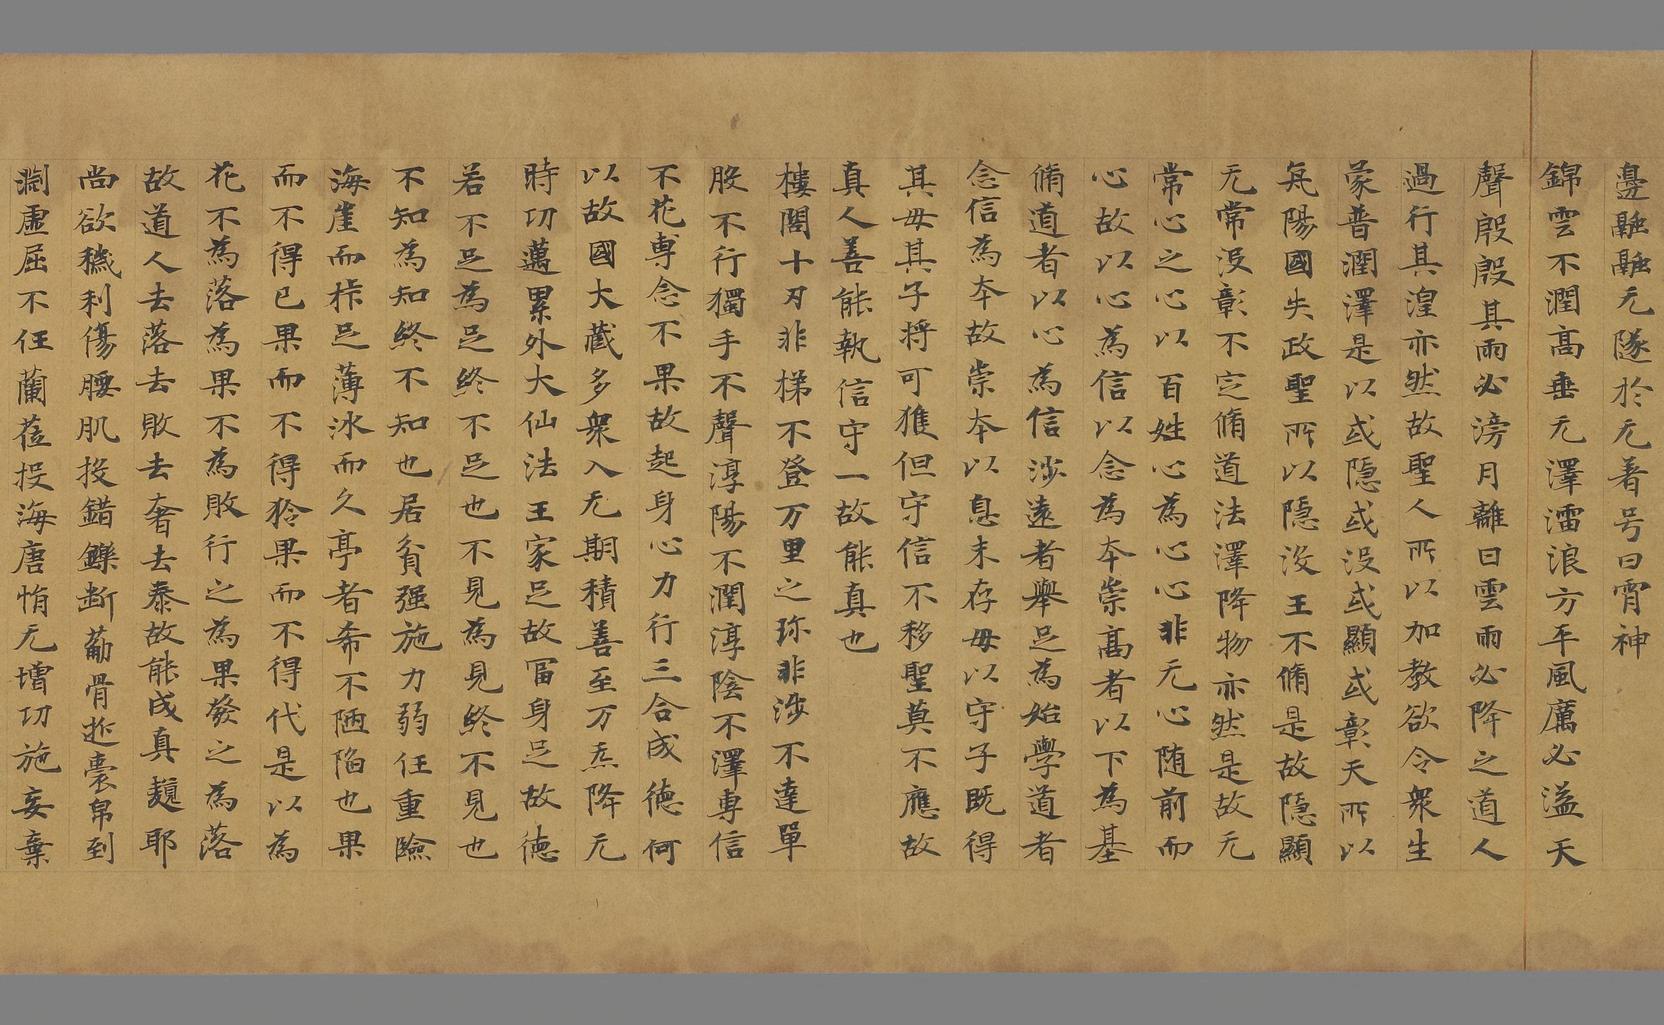 邊融融无隧於无著号曰霄神
錦雲不潤高垂无澤濡浪方平風厲必溢天
聲殷殷其雨必滂月離曰雲雨必降之道人
過行其湟亦然故聖人所以加教欲令衆生
蒙普潤澤是以或隱或没或顯或彰天所以
炁陽國失政聖所以隱没王不脩是故隱顯
无常没彰不定脩道法澤降物亦然是故无
常心之心以百姓心為心心非无心随前而
心故以心為信以念為本崇高者以下為基
脩道者以心為信渉遠者舉足為始學道者
念信為本故崇本以息末存母以守子既得
其母其子將可獲但守信不移聖莫不應故
真人善能執信守一故能真也
樓閣十刃非梯不登万里之弥非渉不達單
股不行獨手不聲淳陽不潤淳陰不澤專信
不花專念不果故起身心力行三合成德何
以故國大藏多衆入无期積善至万炁降无
時功邁累外大仙法王家足故冨身足故德
若不足為足終不足也不見為見終不見也
不知為知終不知也居貧强施力弱任重險
海崖而棑足薄冰而久亭者希不陋陷也果
而不得已果而不得矜果而不得代是以為
花不為落為果不為敗行之為果發之為落
故道人去落去敗去奢去泰故能成真趣耶
尚欲穢利傷腰肌投錯鑠断葡骨逝囊帛到
渕虚屈不任蘭莅投海唐惰无增功施妄棄